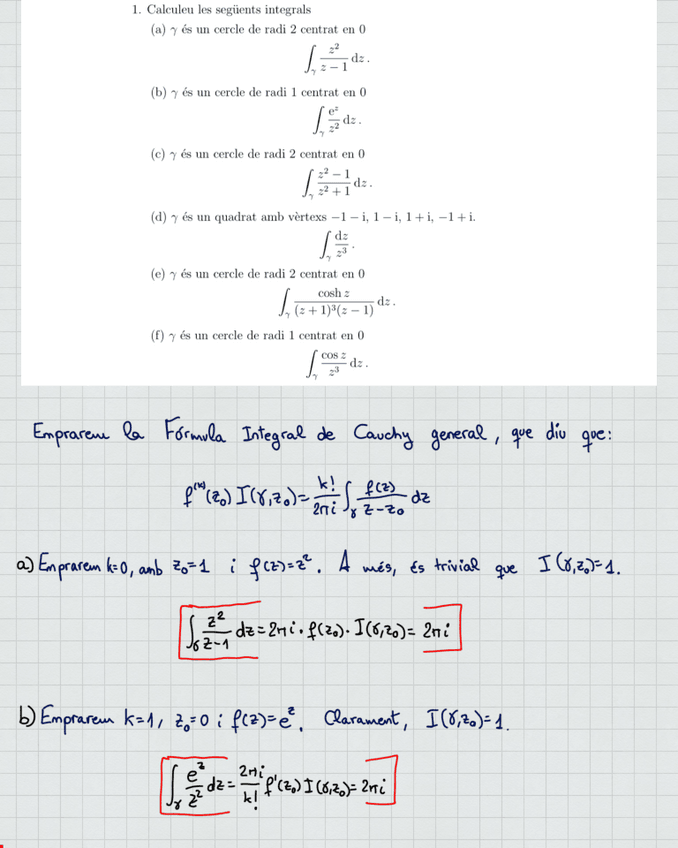 1. Calculeu les següents integrals
(a) γ és un cercle de radi 2 centrat en 0
∫_γ z²/(z − 1) dz .
(b) γ és un cercle de radi 1 centrat en 0
∫_γ e^z/z² dz .
(c) γ és un cercle de radi 2 centrat en 0
∫_γ (z² − 1)/(z² + 1) dz .
(d) γ és un quadrat amb vèrtexs −1 − i, 1 − i, 1 + i, −1 + i.
∫_γ dz/z³ .
(e) γ és un cercle de radi 2 centrat en 0
∫_γ cosh z/((z + 1)³(z − 1)) dz .
(f) γ és un cercle de radi 1 centrat en 0
∫_γ cos z/z³ dz .
Emprarem la Fórmula Integral de Cauchy general, que diu que:
f^(k)(z₀) I(γ,z₀) = k!/(2πi) ∫_γ f(z)/(z−z₀) dz
a) Emprarem k=0, amb z₀=1 i f(z)=z². A més, és trivial que I(γ,z₀)=1.
∫_γ z²/(z−1) dz = 2πi · f(z₀) · I(γ,z₀) = 2πi
b) Emprarem k=1, z₀=0 i f(z)=e^z. Clarament, I(γ,z₀)=1.
∫_γ e^z/z² dz = 2πi/k! f'(z₀) I(γ,z₀) = 2πi